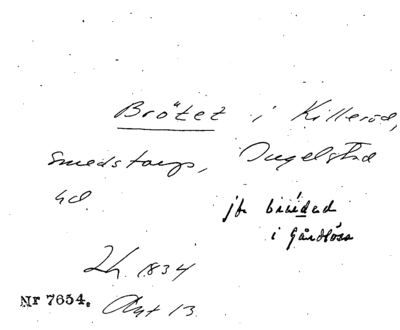 Brötet i Killeröd,
Smedstorps, Ingelstad
hd.
jfr
i Gårdlösa
Lh. 1834
Nr 7654. Akt 13